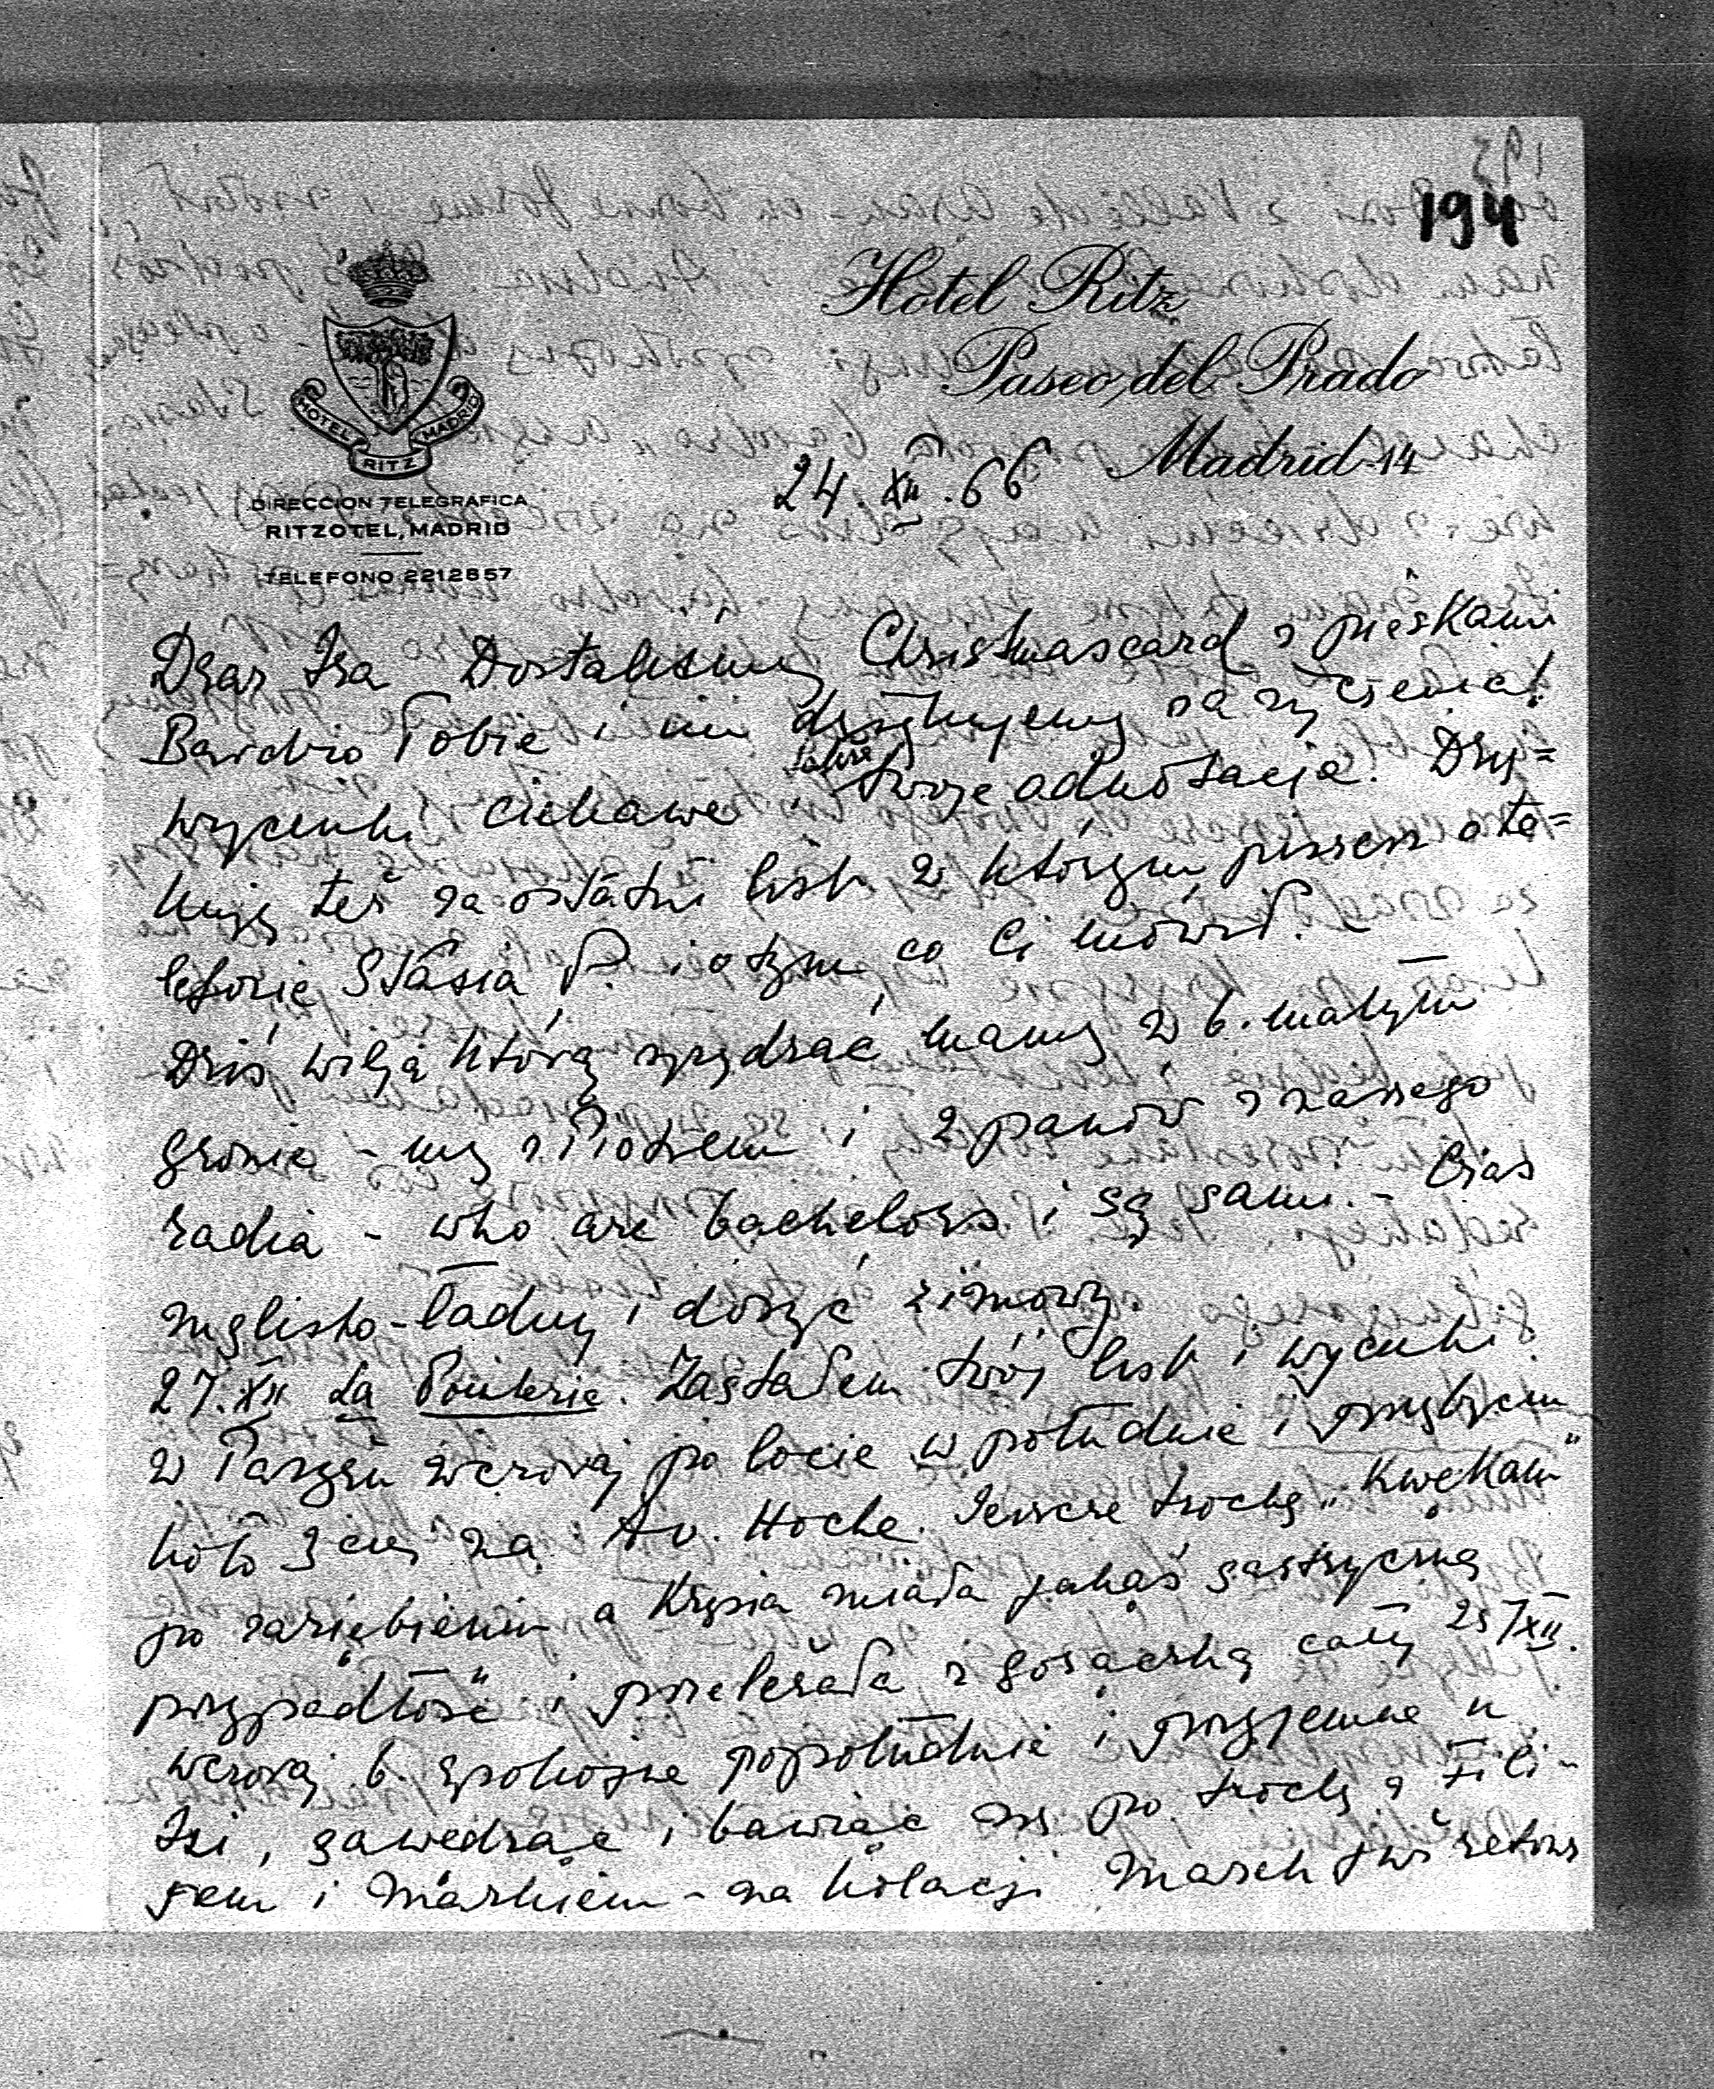 194
Hotel Ritz
Paseo del Prado
Madrid-14
HOTEL RITZ MADRID
DIRECCION TELEGRAFICA
RITZOTEL, MADRID
TELEFONO 2212857
24.XII.66
Drar Iza Dostaliśmy Christmascard z pieskami
Bardzo Tobie i im dziękujemy za życzenia!
Wycinki ciekawe i także twoje adnotacje. Dzię=
kuję też za ostatni list w którym piszesz o te=
lefonie Stasia P. i o tym co Ci mówił. –
Dziś wilja którą spędzać mamy w b. małym
gronie - my z Piotrem i 2 panów z naszego
radia - who are bachelors i są sami. - Czas
mglisto-ładny i dosyć zimowy.
27.XII La Poulerie. Zastałem twój list i wycinki
w Paryżu wczoraj po locie w południe i przybyciem
koło 3 ciej na Av. Hoche. Jeszcze trochę „kwękam"
po zaziębieniu a Krysia miała jakąś gastryczną
„przypadłość" i przeleżała z gorączką cały 25/XII.
Wczoraj b. spokojne popołudnie i przyjemne u
Izi, gawędząc i bawiąc się po trochę z Fili-
pem i Markiem - na kolacji Marek już